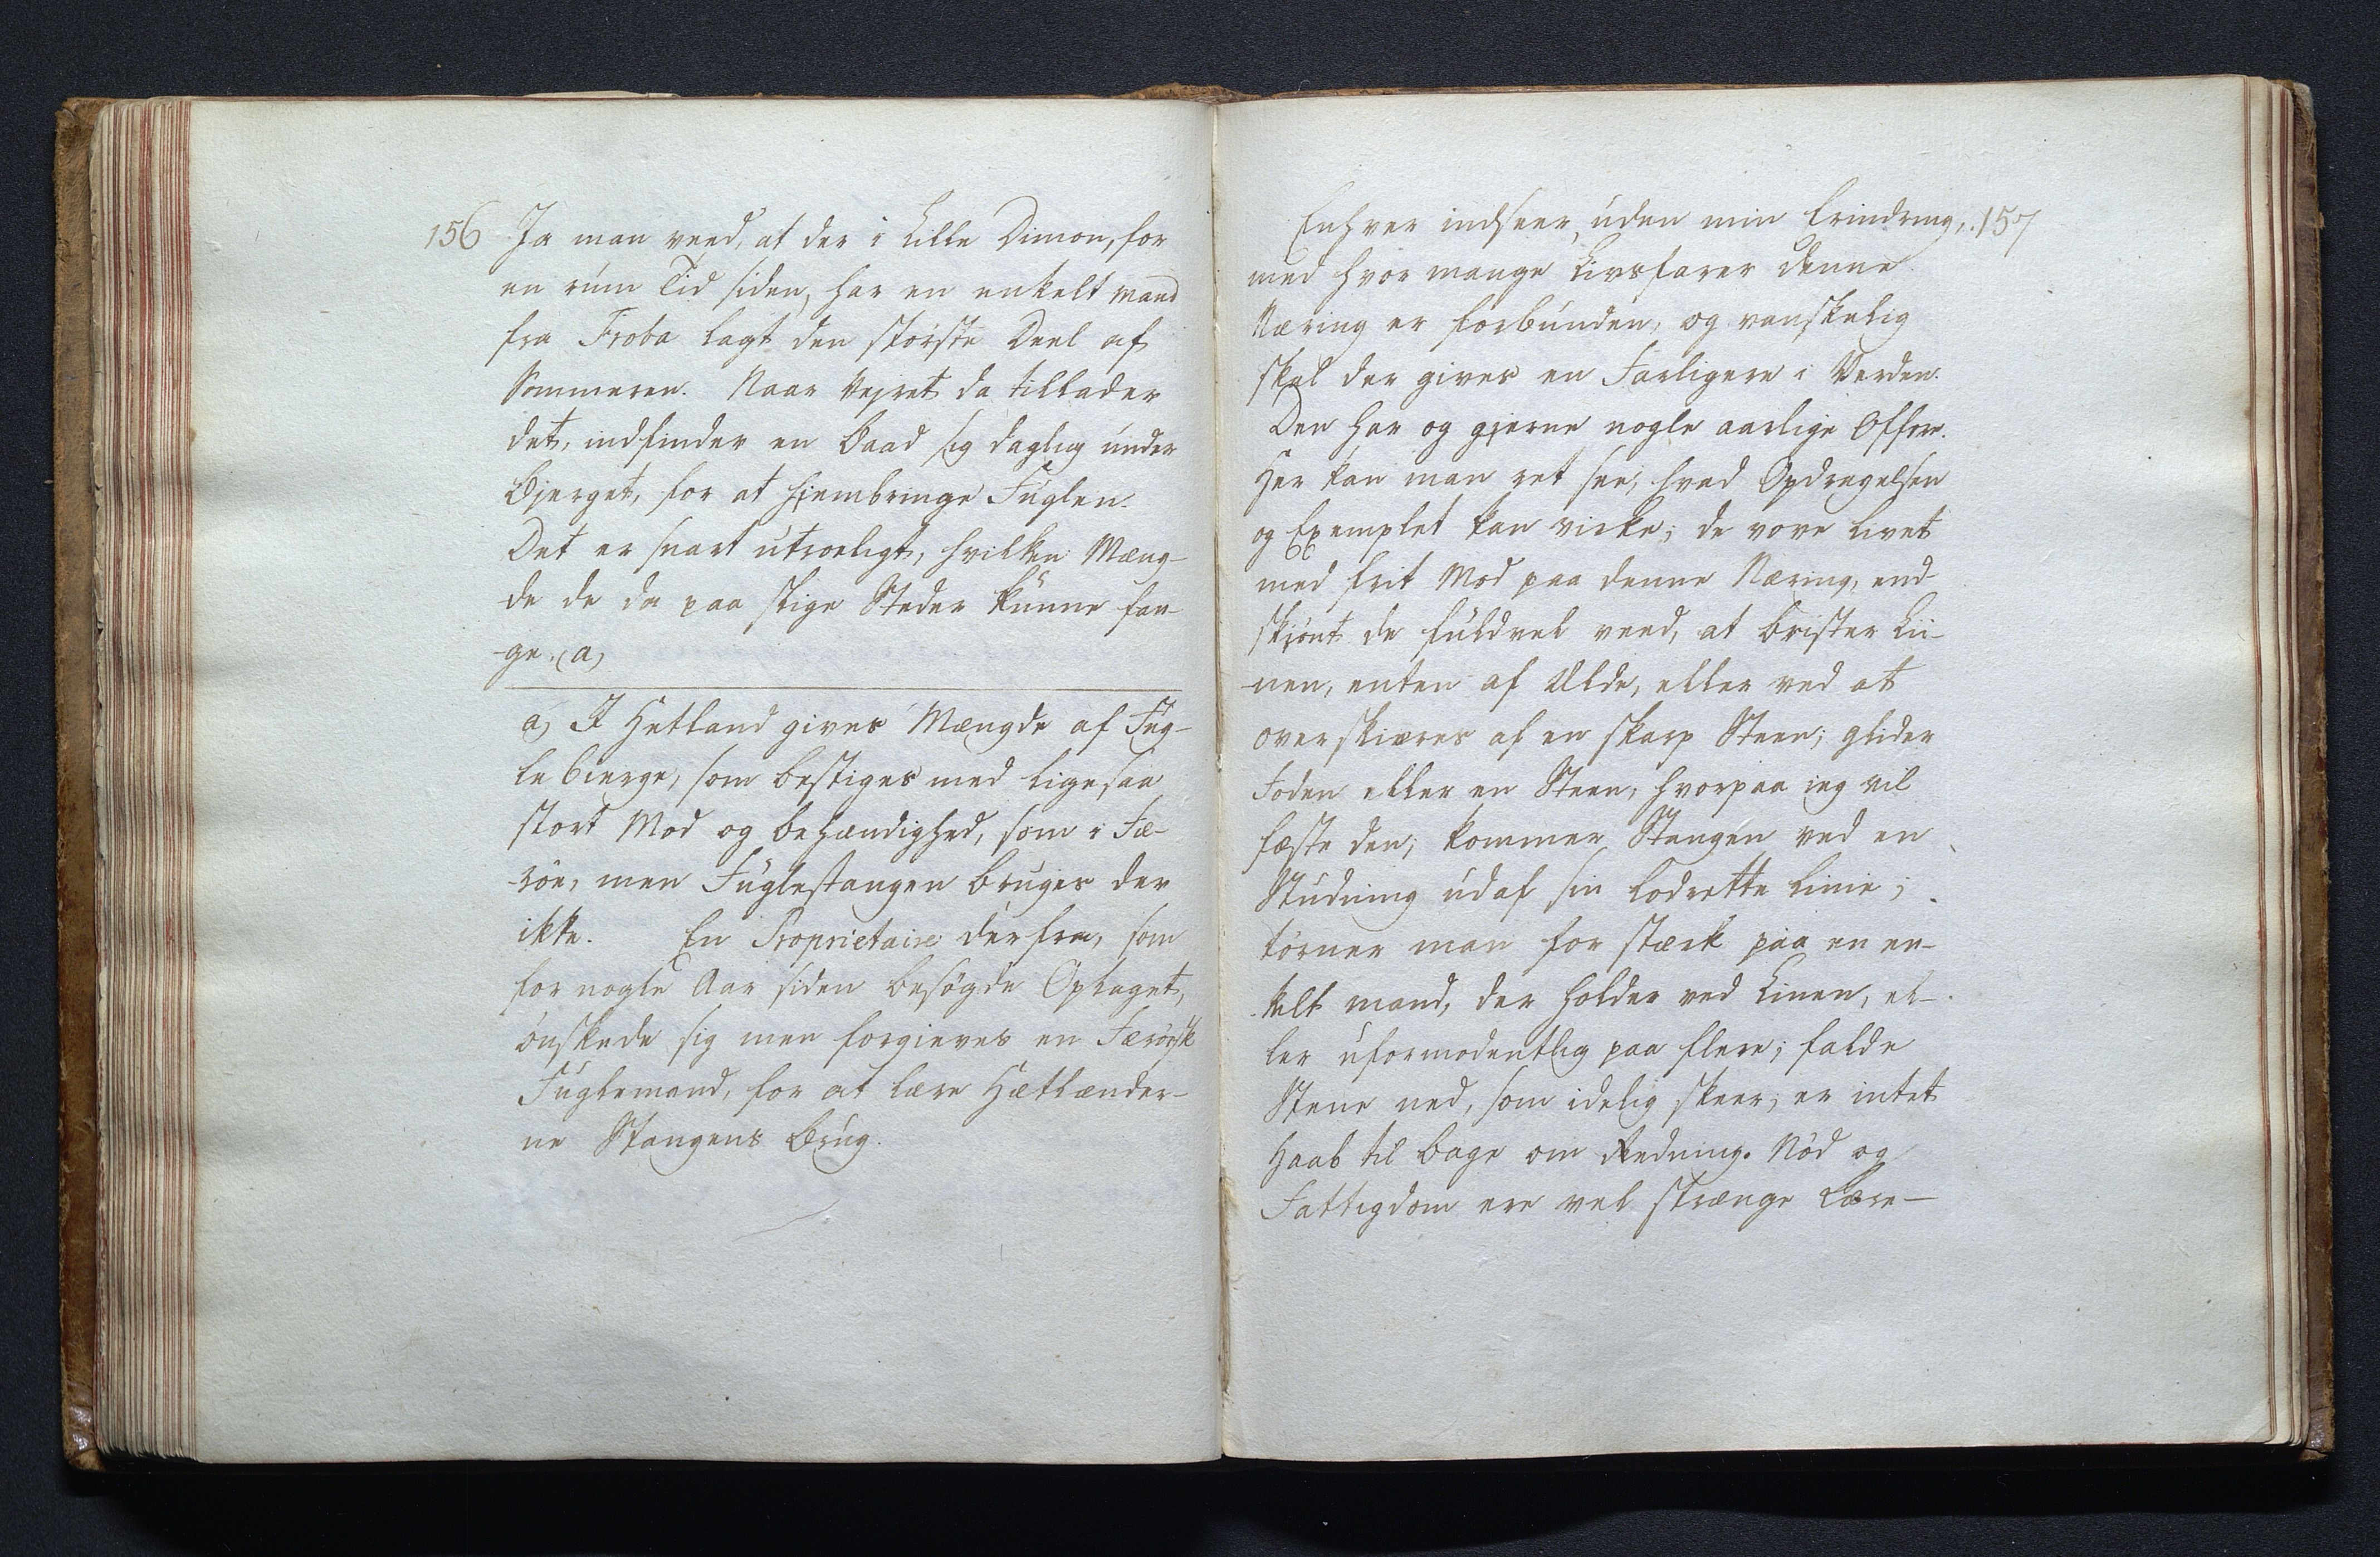 156 Ja man veed, at der i Lille Dimon, for
en rúm Tid siden, har en enkelt mand
fra Froba lagt den störste Deel af
Sommeren. Naar Vejret da tillader
det, indfinder en Baad sig daglig únder
Bjerget, for at hjembringe Fúglen.
Det er snart útroeligt, hvilken Mæng-
de de da paa slige Steder kúnne fan-
-ge. (a)
a) I Hetland gives Mængde af Fúg-
le bierge, som bestiges med ligesaa
stort Mod og behændighed, som i Fæ-
-röe, men Fúglestangen brúges der
ikke. En Proprietaire derfra, som
for nogle Aar siden besögde Oplaget,
önskede sig men forgieves en Færöisk
Fúglemand, for at lære Hetlænder-
ne Stangens Brúg.
Enhver indseer, úden min Erindring, 157
med hvor mange Livsfarer denne
Næring er forbúnden, og vanskelig
skal der gives en Farligere i Verden.
Den har og gjerne nogle aarlige Offere.
Her kan man ret see, hvad Opdragelsen
og Exemplet kan virke; de vove Livet
med frit Mod paa denne Næring, end-
skjönt de fúldvel veed, at brister Lii-
-nen, enten af Ælde, eller ved at
overskiæres af en skarp Steen; glider
Foden eller en Steen, hvorpaa jeg vil
fæste den; kommer Stangen ved en
Stúdning údaf sin lodrette Linie;
törner man for stærk paa en en-
-kelt mand, der holder ved Linen, el-
ler úformodentlig paa flere; falde
Stene ned, som idelig skeer, er intet
Haab til bage om Redning. Nöd og
Fattigdom ere vel strænge Lære-